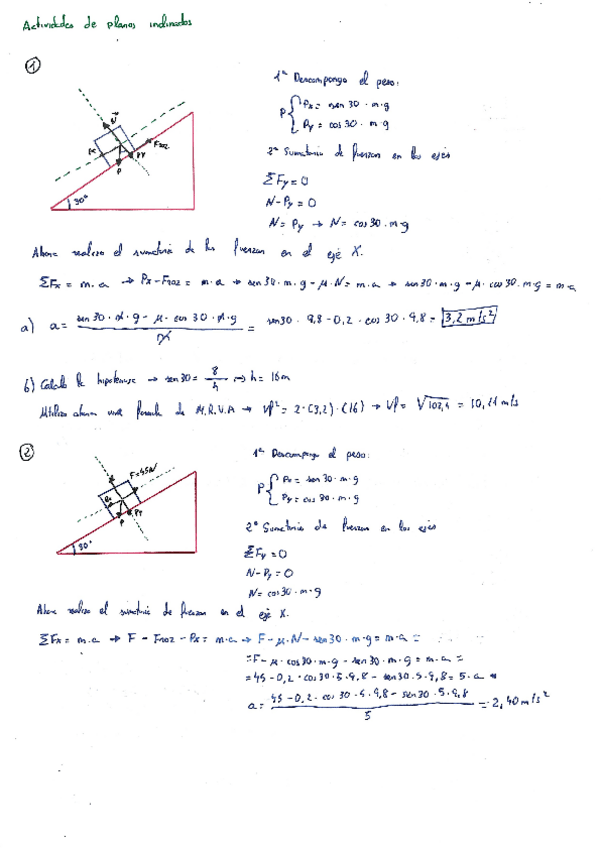 Actividades de planos inclinados
①
1º Descompongo el peso:
P { Px = sen 30 · m · g
Py = cos 30 · m · g
N
Px
P
Py
Froz
30°
2º Sumatorio de fuerzas en los ejes
ΣFy = 0
N - Py = 0
N = Py → N = cos 30 · m · g
Ahora realizo el sumatorio de las fuerzas en el eje X.
ΣFx = m · a → Px - Froz = m · a → sen 30 · m · g - μ · N = m · a → sen 30 · m · g - μ · cos 30 · m · g = m · a
a) a = sen 30 · m · g - μ · cos 30 · m · g / m = sen 30 · 9,8 - 0,2 · cos 30 · 9,8 = 3,2 m/s²
b) Calculo la hipotenusa → sen 30 = 8/h → h = 16 m
Utilizo ahora una fórmula de M.R.U.A → Vf² = 2 · (3,2) · (16) → Vf = √102,4 = 10,11 m/s
②
1º Descompongo el peso:
P { Px = sen 30 · m · g
Py = cos 30 · m · g
F = 45N
P
Py
30°
2º Sumatorio de fuerzas en los ejes
ΣFy = 0
N - Py = 0
N = cos 30 · m · g
Ahora realizo el sumatorio de fuerzas en el eje X.
ΣFx = m · a → F - Froz - Px = m · a → F - μ · N - sen 30 · m · g = m · a =
= F - μ · cos 30 · m · g - sen 30 · m · g = m · a =
= 45 - 0,2 · cos 30 · 5 · 9,8 - sen 30 · 5 · 9,8 = 5 · a
a = 45 - 0,2 · cos 30 · 5 · 9,8 - sen 30 · 5 · 9,8 / 5 = 2,40 m/s²